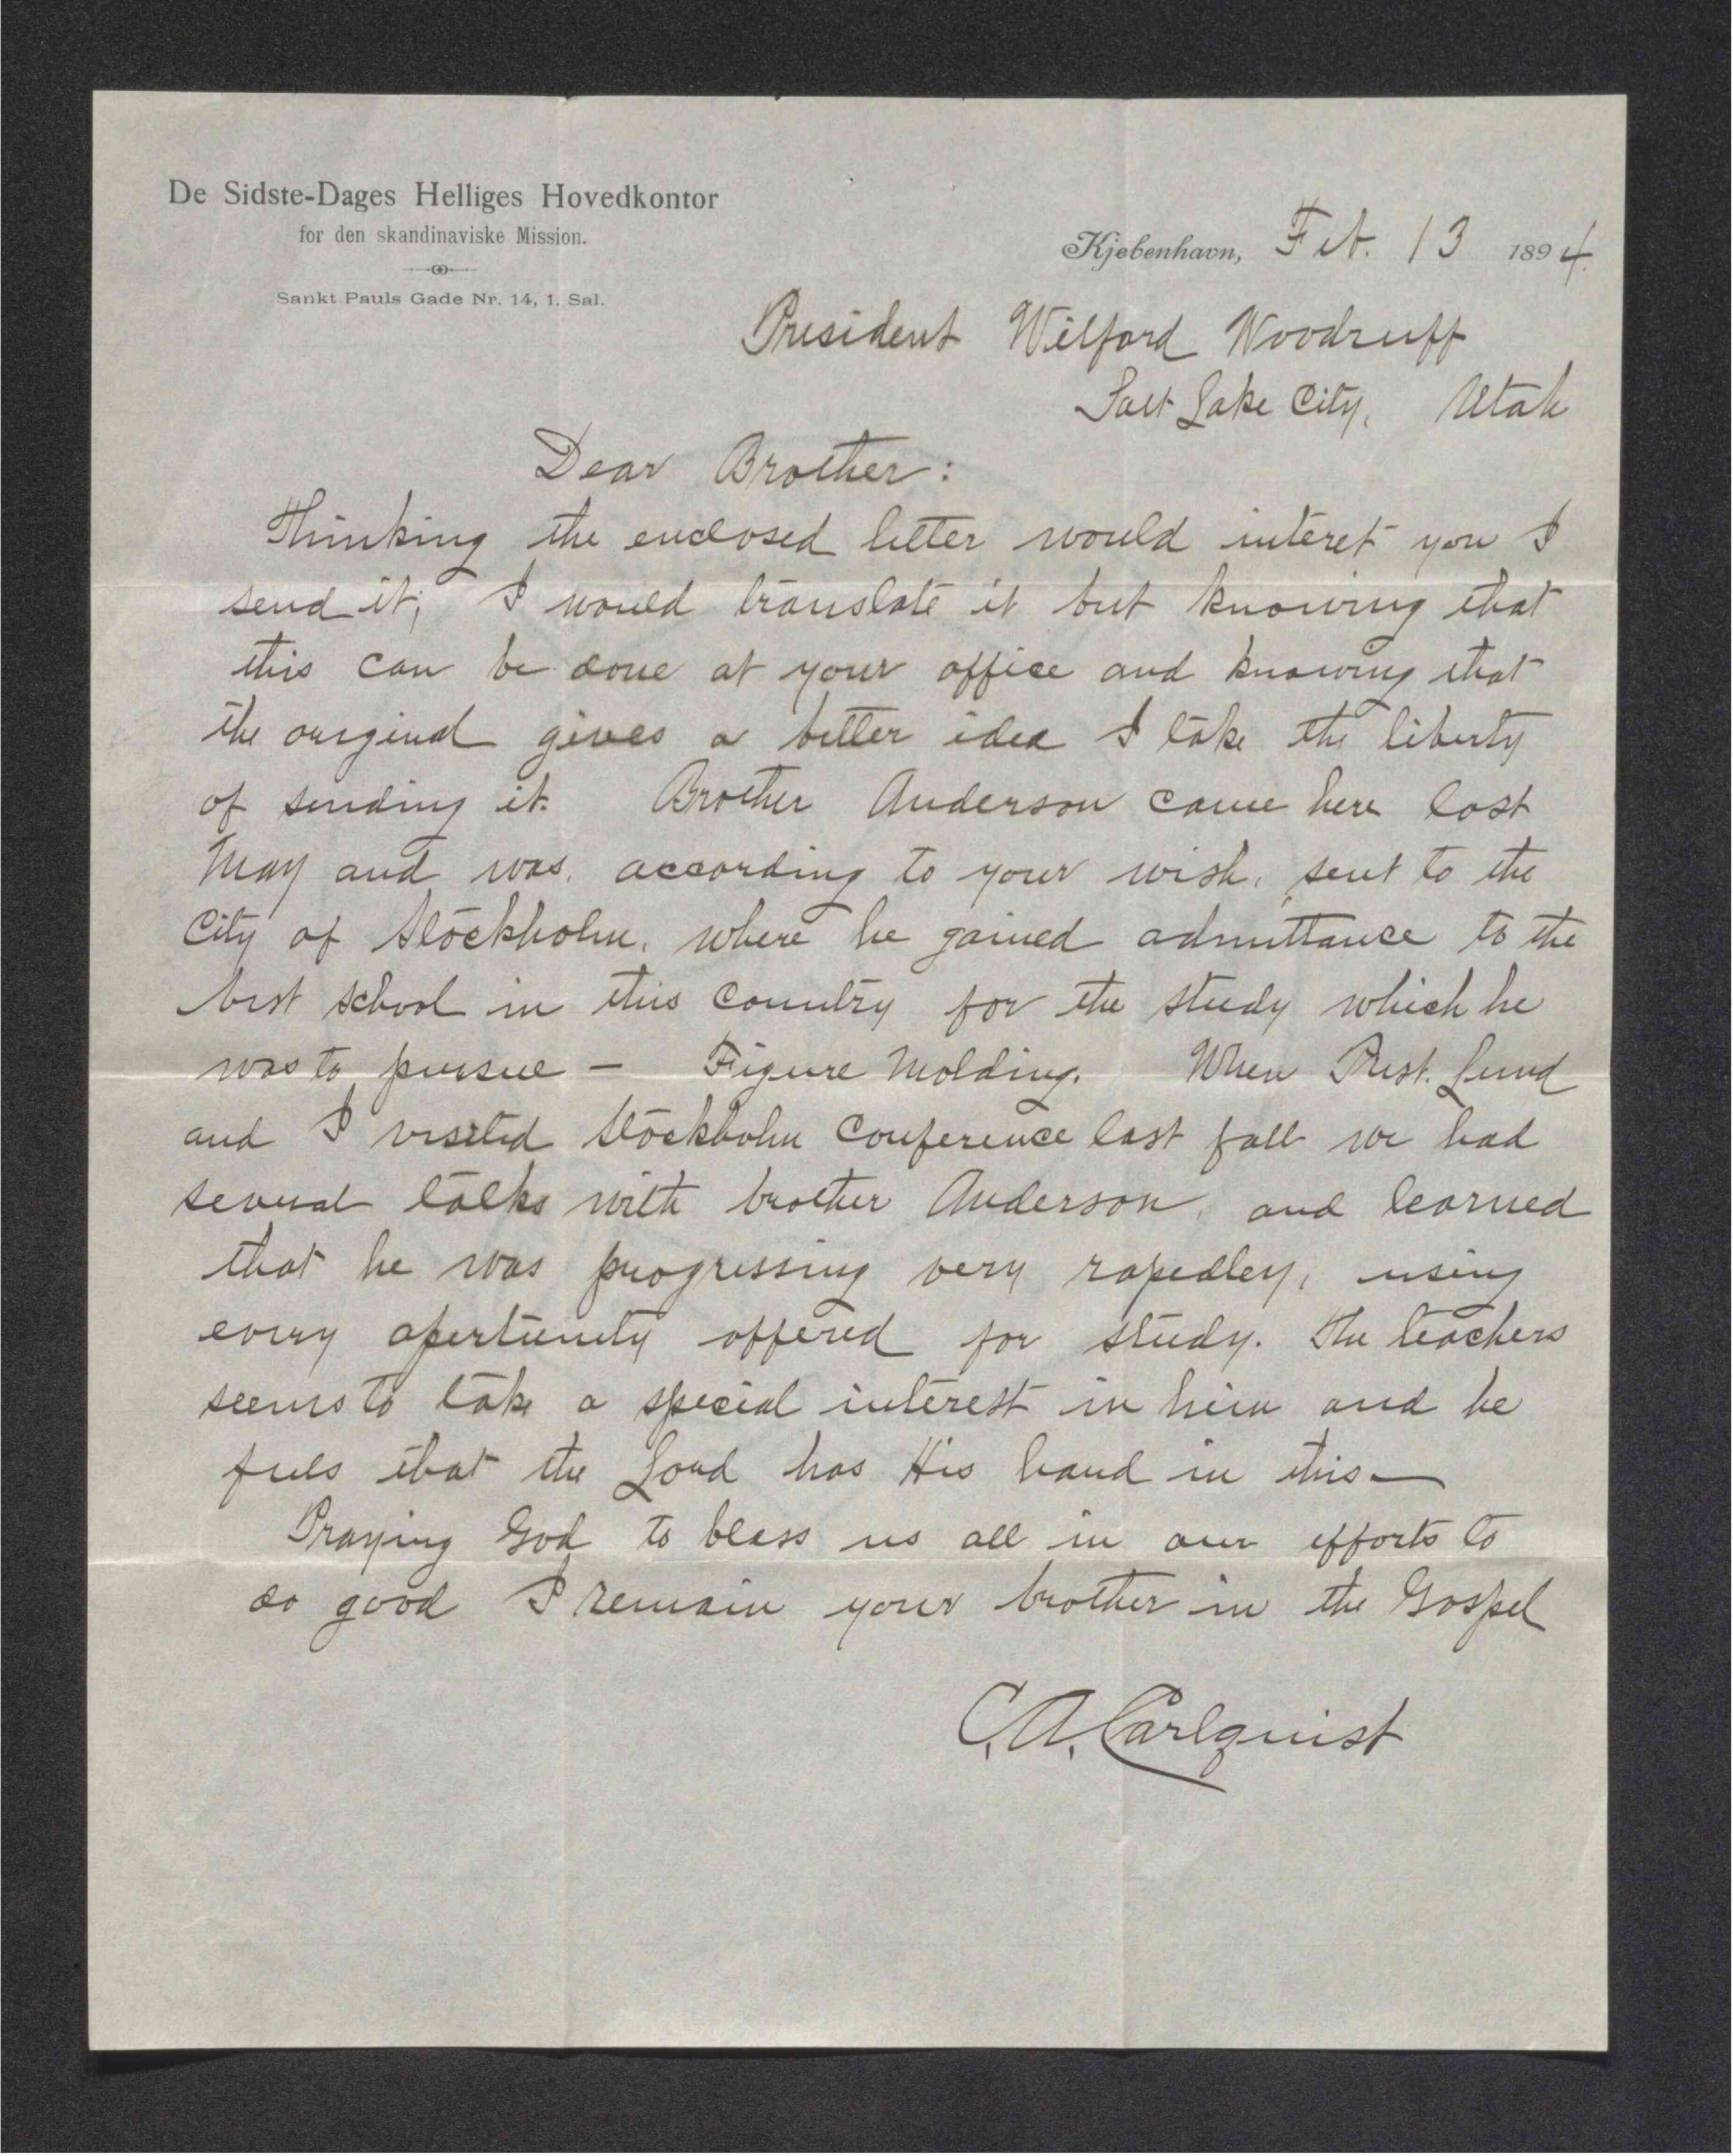 De Sidste-Dages Helliges Hovedkontor
for den skandinaviske Mission.
Sankt Pauls Gade Nr. 14, 1. Sal.
Kjøbenhavn, Feb. 13 1894.
President Wilford Woodruff
Salt Lake City, Utah
Dear Brother:
Thinking the enclosed letter would interet you I
send it; I would translate it but knowing that
this can be done at your office and knowing that
the original gives a better idea I take the liberty
of sending it. Brother Anderson came here last
May and was, according to your wish, sent to the
City of Stockholm, where he gained admittance to the
best school in this country for the study which he
was to pursue — Figure Molding. When Prest. Lund
and I visited Stockholm Conference last fall we had
several talks with brother Anderson, and learned
that he was progressing very rapedley, using
every opertunity offered for study. The teachers
seems to take a special interest in him and he
feels that the Lord has His hand in this—
Praying God to bless us all in our efforts to
do good I remain your brother in the Gospel
C. A. Carlquist